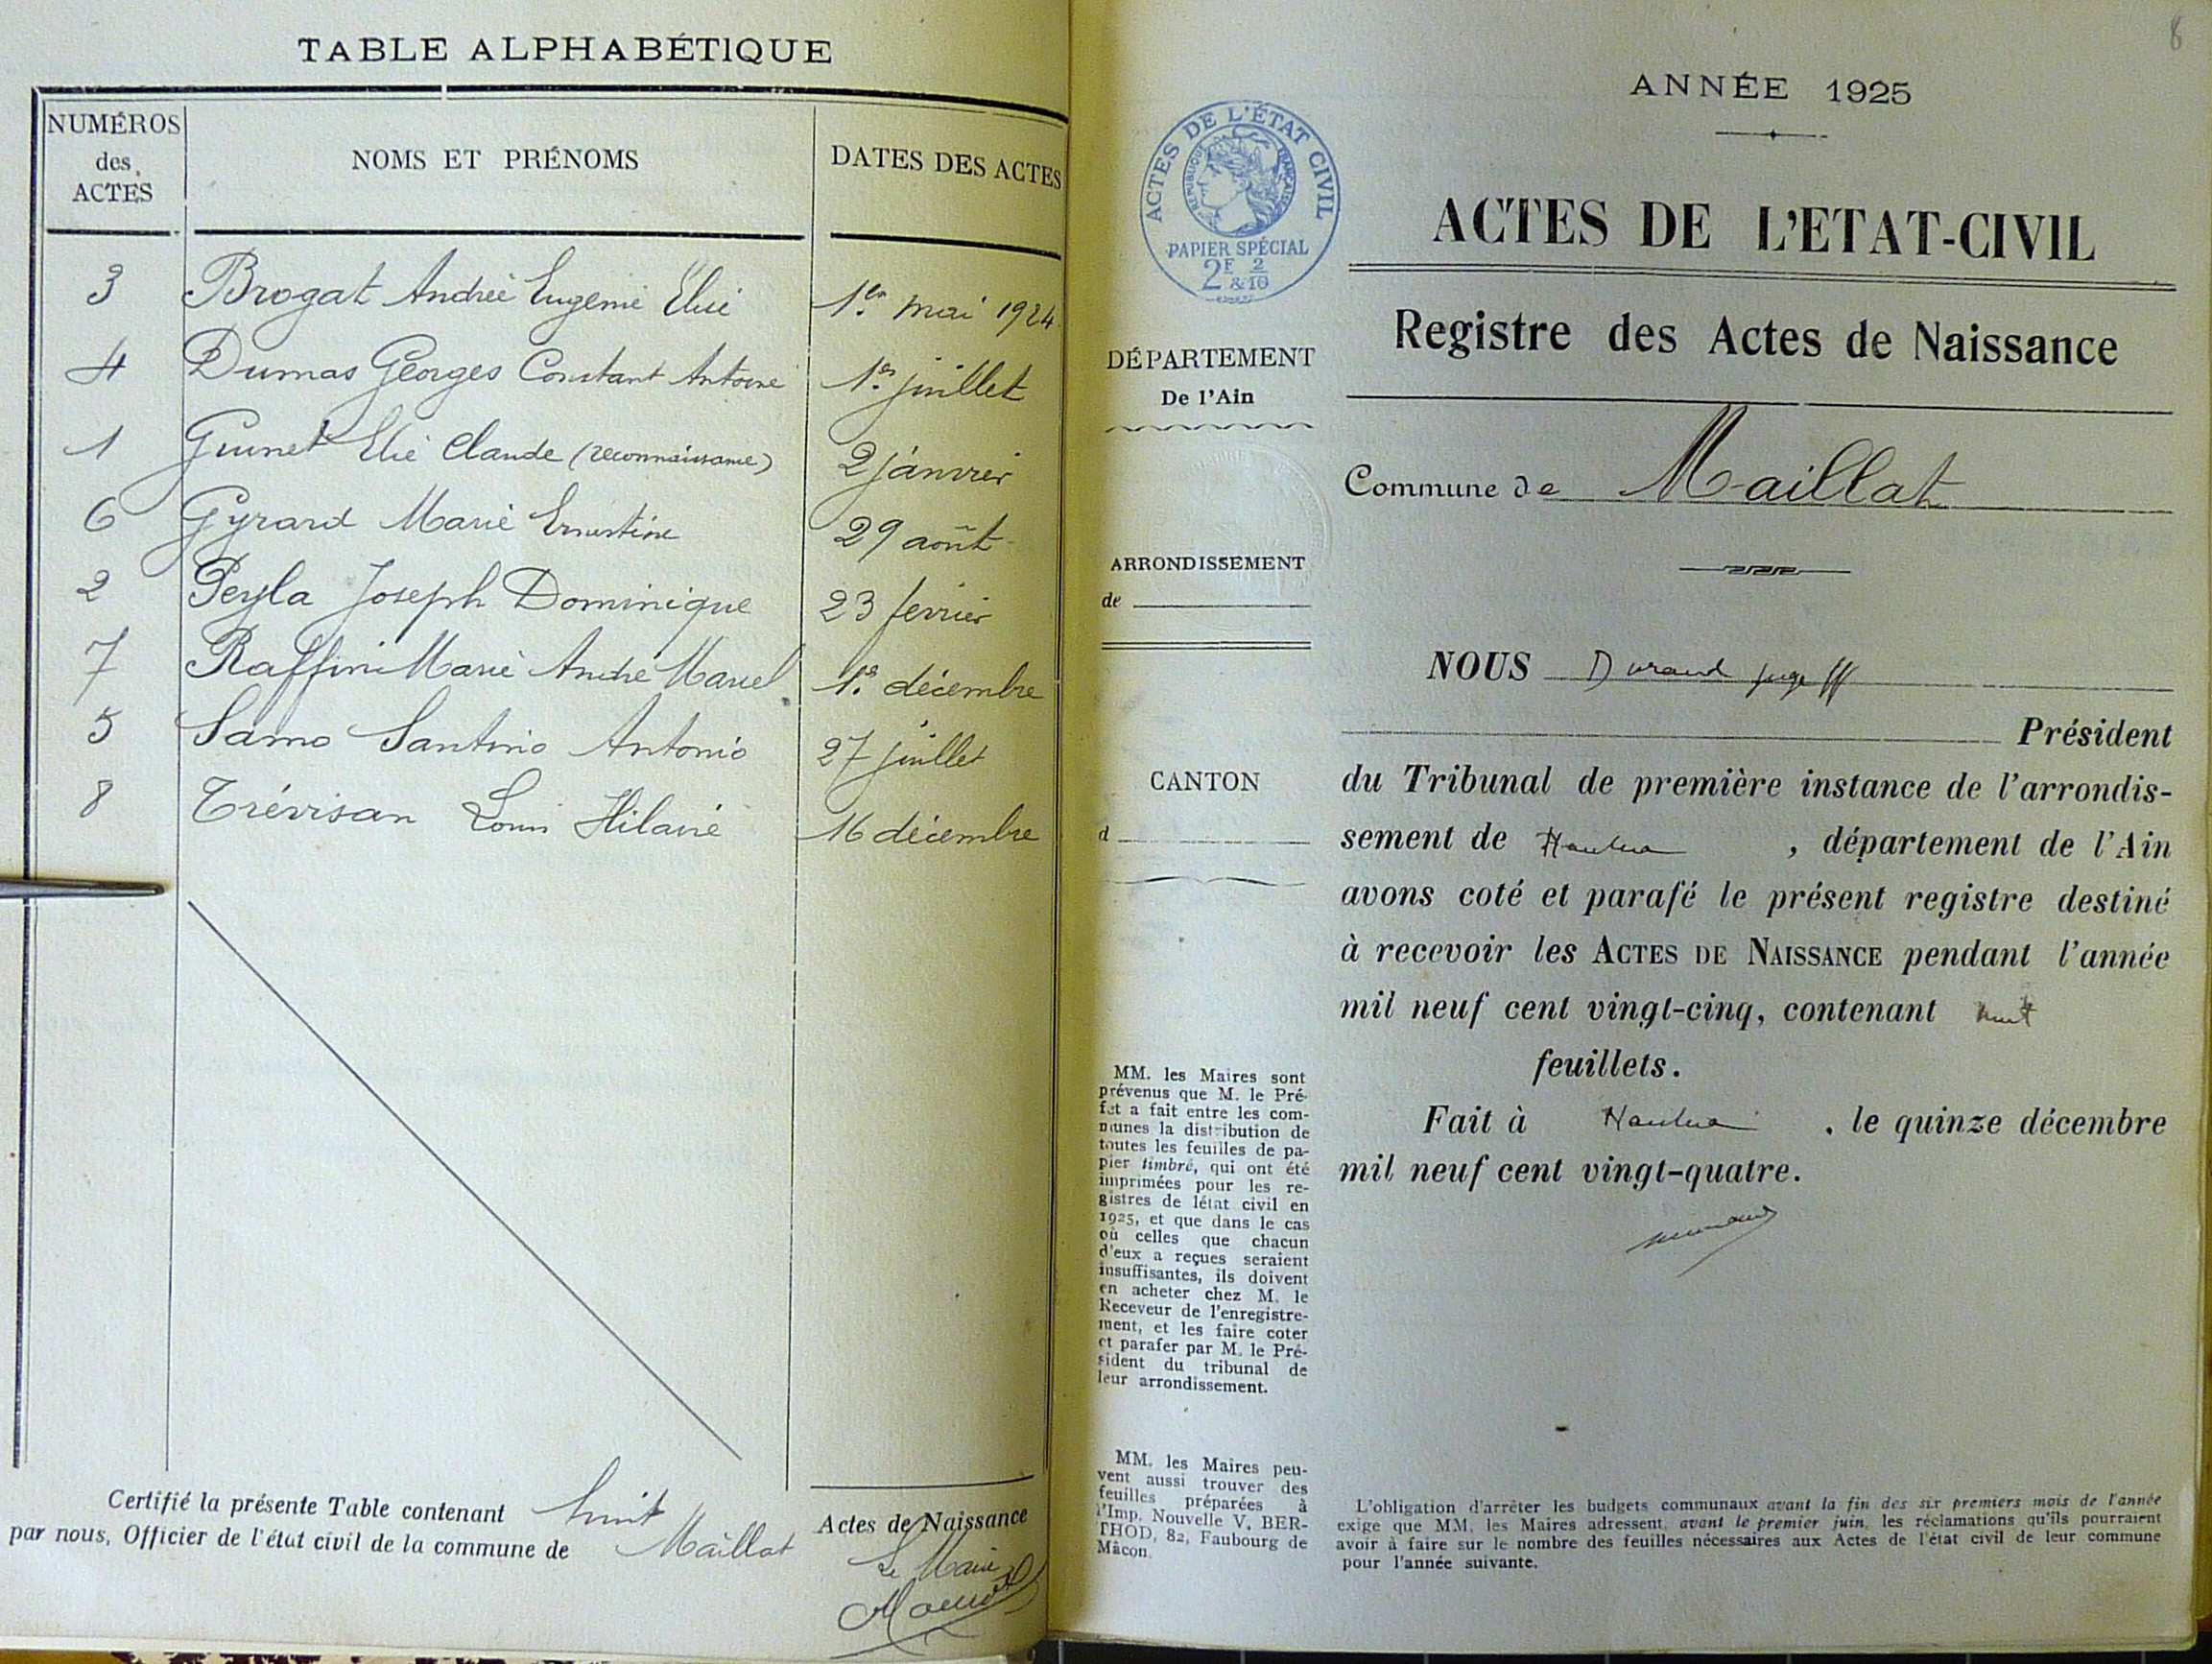 TABLE ALPHABÉTIQUE
NUMÉROS
des
ACTES
NOMS ET PRÉNOMS
DATES DES ACTES
3 Brogat Andrée Eugenie Elise 1er mai 1924
4 Dumas Georges Constant Antoine 1er juillet
1 Guinet Elie Claude (reconnaissance) 2 janvier
6 Gyrard Marie Ernestine 29 août
2 Peyla Joseph Dominique 23 fevrier
7 Raffini Marie André Marcel 1er décembre
5 Samo Santino Antonio 27 juillet
8 Trévisan Louis Hilaire 16 décembre
Certifié la présente Table contenant huit Actes de Naissance
par nous, Officier de l'état civil de la commune de Maillat
Le Maire
8
ANNÉE 1925
ACTES DE L'ÉTAT CIVIL
RÉPUBLIQUE FRANÇAISE
PAPIER SPÉCIAL
2F 2
&10
DÉPARTEMENT
De l'Ain
ARRONDISSEMENT
de
CANTON
d
MM. les Maires sont
prévenus que M. le Pré-
fet a fait entre les com-
munes la distribution de
toutes les feuilles de pa-
pier timbré, qui ont été
imprimées pour les re-
gistres de létat civil en
1925, et que dans le cas
où celles que chacun
d'eux a reçues seraient
insuffisantes, ils doivent
en acheter chez M. le
Receveur de l'enregistre-
ment, et les faire coter
et parafer par M. le Pré-
sident du tribunal de
leur arrondissement.
MM. les Maires peu-
vent aussi trouver des
feuilles préparées à
l'Imp. Nouvelle V. BER-
THOD, 82, Faubourg de
Mâcon.
ACTES DE L'ETAT-CIVIL
Registre des Actes de Naissance
Commune de Maillat
NOUS Durand juge ff
Président
du Tribunal de première instance de l'arrondis-
sement de Nantua , département de l'Ain
avons coté et parafé le présent registre destiné
à recevoir les ACTES DE NAISSANCE pendant l'année
mil neuf cent vingt-cinq, contenant huit
feuillets.
Fait à Nantua , le quinze décembre
mil neuf cent vingt-quatre.
L'obligation d'arrêter les budgets communaux avant la fin des six premiers mois de l'année
exige que MM. les Maires adressent, avant le premier juin, les réclamations qu'ils pourraient
avoir à faire sur le nombre des feuilles nécessaires aux Actes de l'état civil de leur commune
pour l'année suivante.